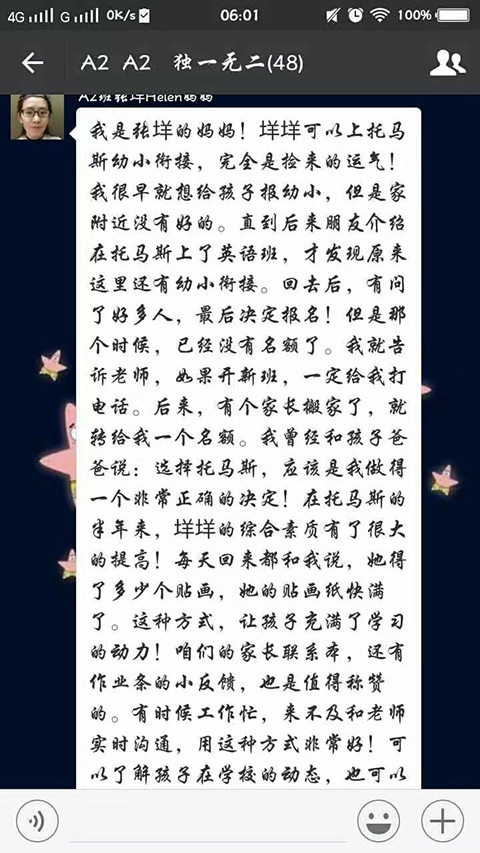 4G G 0K/s 06:01 100%
A2 A2 独一无二(48)
A2班张垟Helen妈妈
我是张垟的妈妈！垟垟可以上托马
斯幼小衔接，完全是捡来的运气！
我很早就想给孩子报幼小，但是家
附近没有好的。直到后来朋友介绍
在托马斯上了英语班，才发现原来
这里还有幼小衔接。回去后，有问
了好多人，最后决定报名！但是那
个时候，已经没有名额了。我就告
诉老师，如果开新班，一定给我打
电话。后来，有个家长搬家了，就
转给我一个名额。我曾经和孩子爸
爸说：选择托马斯，应该是我做得
一个非常正确的决定！在托马斯的
半年来，垟垟的综合素质有了很大
的提高！每天回来都和我说，她得
了多少个贴画，她的贴画纸快满
了。这种方式，让孩子充满了学习
的动力！咱们的家长联系本，还有
作业条的小反馈，也是值得称赞
的。有时候工作忙，来不及和老师
实时沟通，用这种方式非常好！可
以了解孩子在学校的动态，也可以